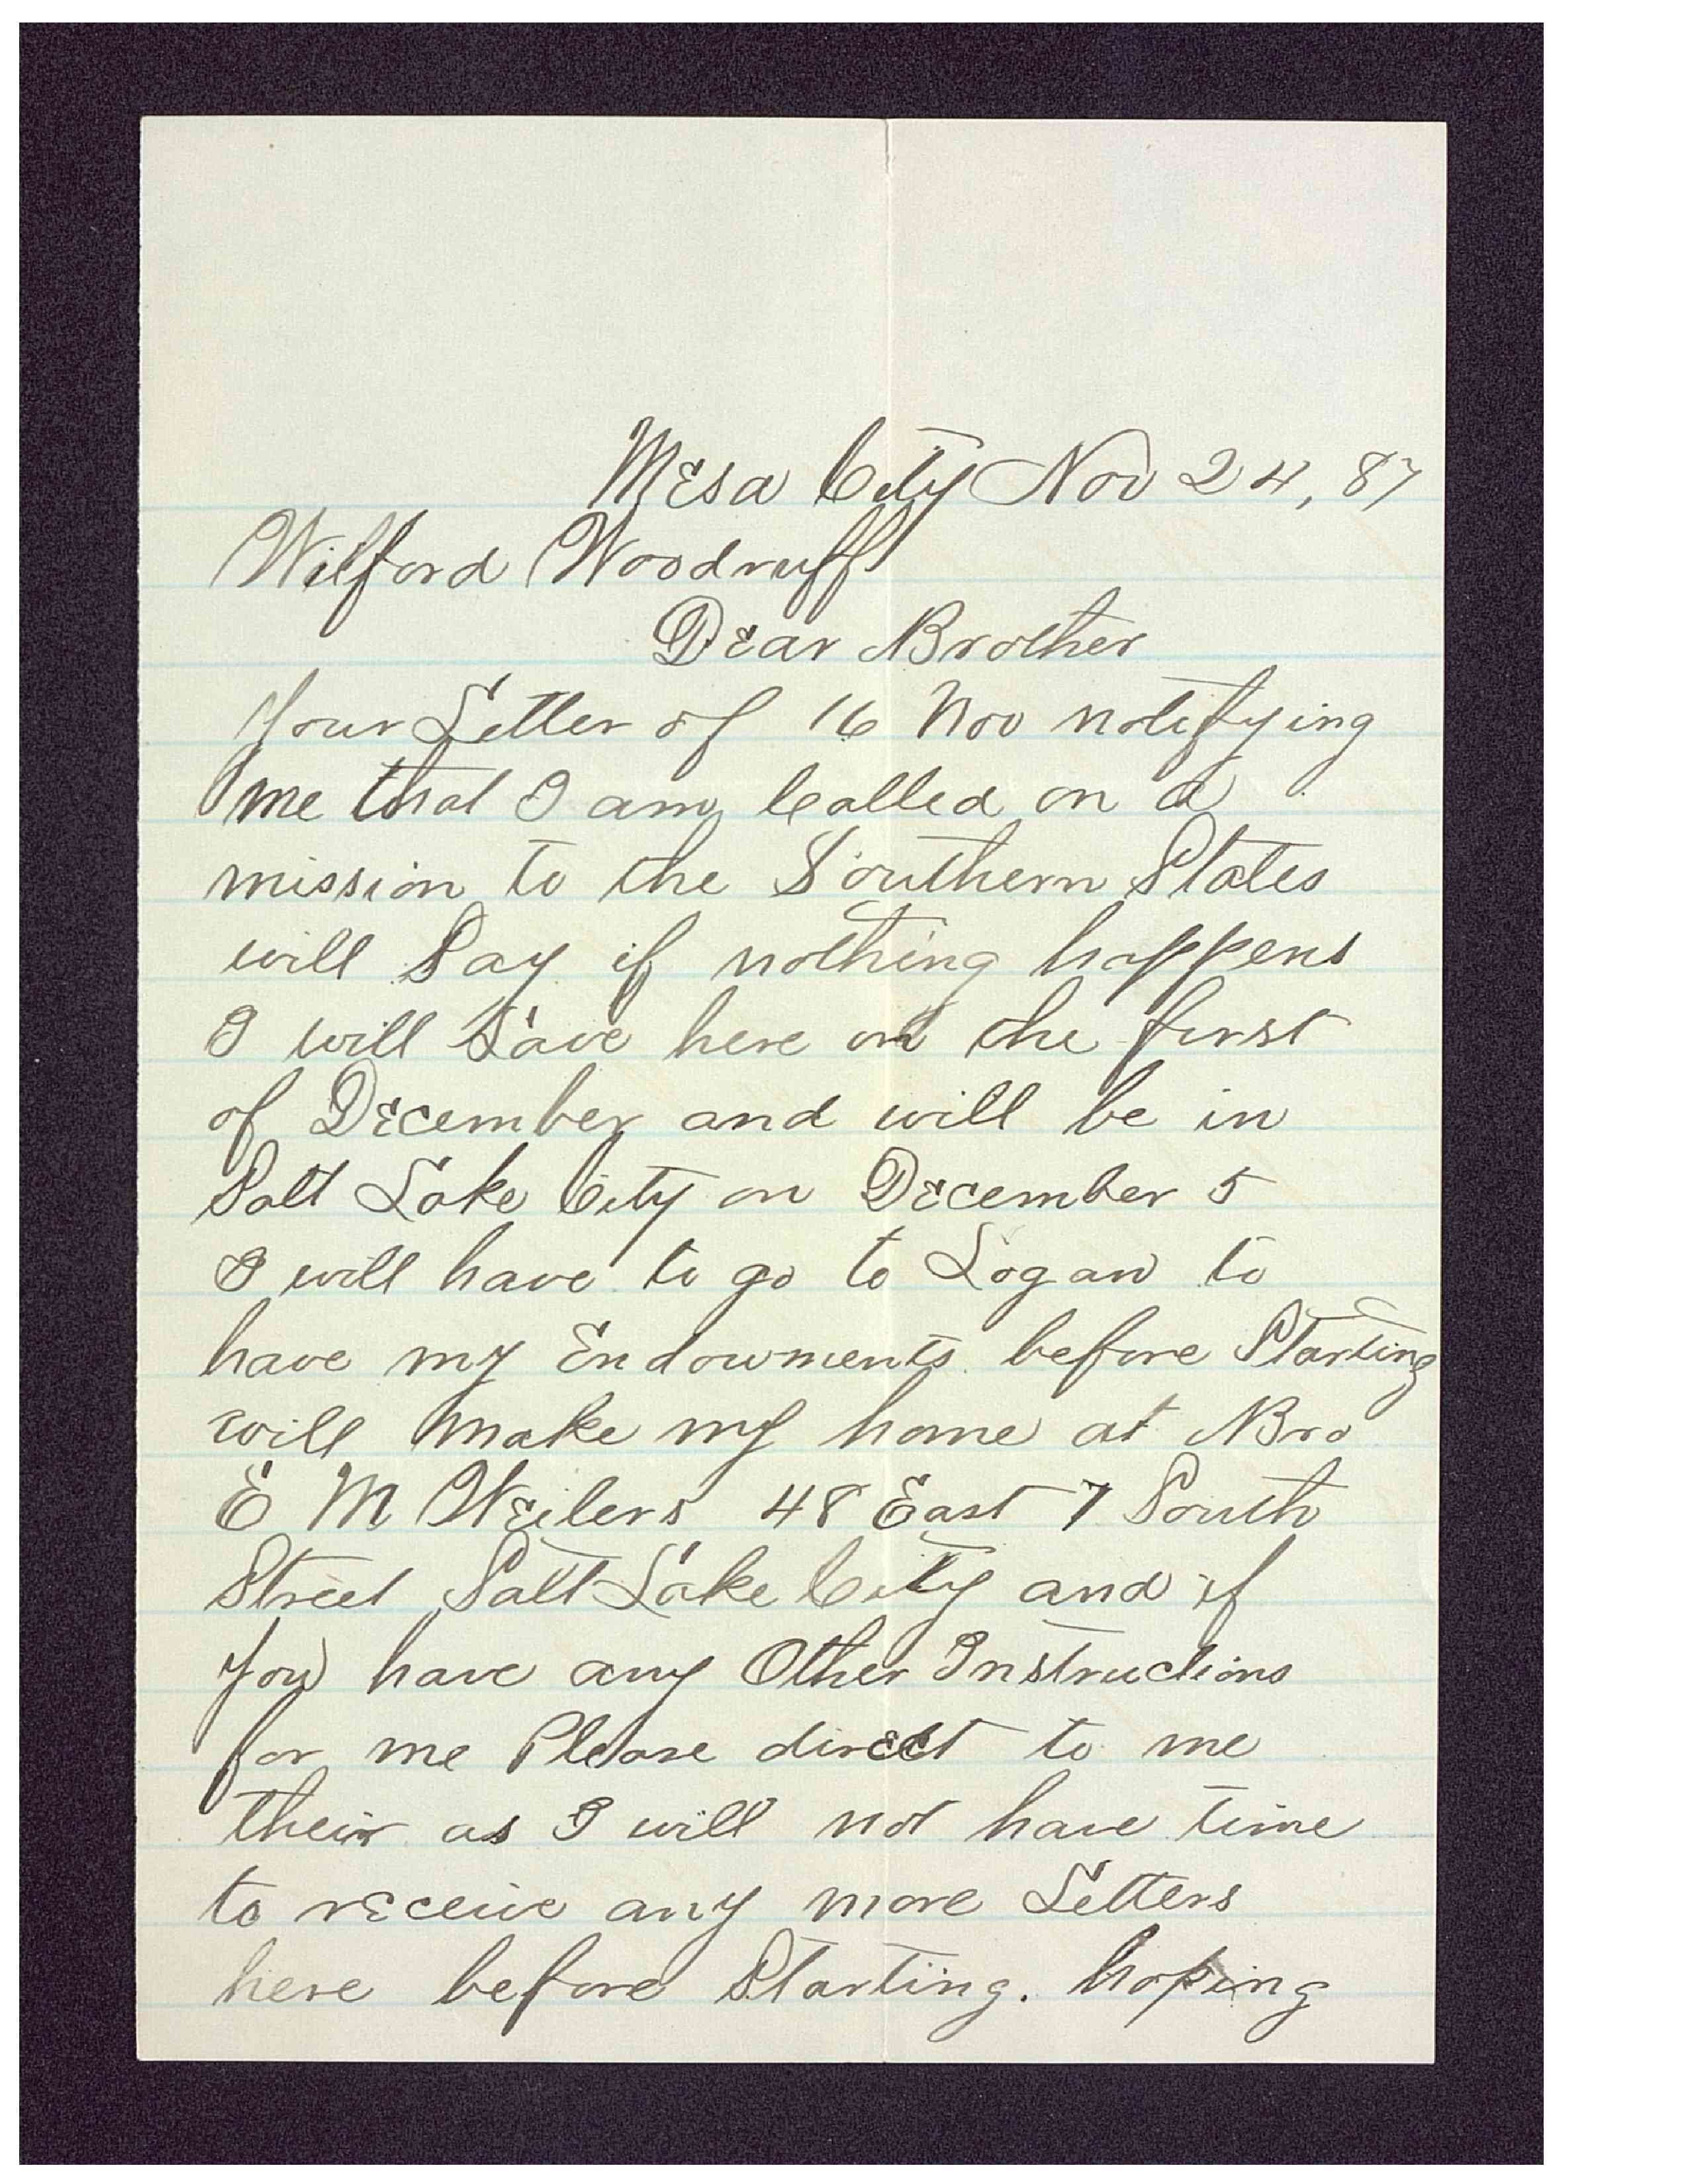 Mesa City Nov 24, 87
Wilford Woodruff
Dear Brother
Your Letter of 16 Nov notifying
me that I am Called on a
mission to the Southern States
will Say if nothing happens
I will Leave here on the first
of December and will be in
Salt Lake City on December 5
I will have to go to Logan to
have my Endowments before Starting
will make my home at Bro
E M Weilers 48 East 7 South
Street Salt Lake City and if
you have any Other Instructions
for me Please direct to me
their as I will not have time
to receive any more Letters
here before Starting. hoping